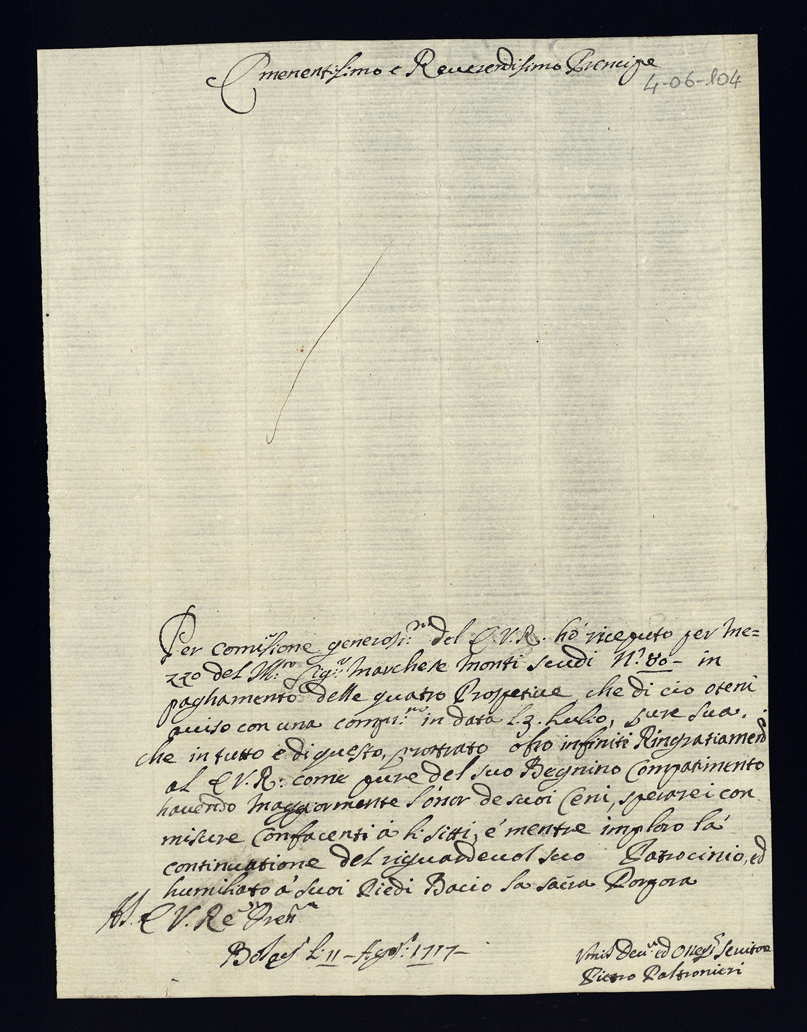 Emenentissimo e Reverendissimo Prencipe
4-06-104
Per comissione generosi:ma del E.V.R. hò riceputo per me=
zzo del Ill:mo Sig:r Marchese Monti scudi N.º 80 - in
paghamento delle quatro Prospetive che di cio oteni
aviso con una compi:ma in data l 3. Lulio, pure sua.
che in tutto è di questo, prostrato ofro infiniti Ringratiamen
al E.V.R: come pure del suo Begnino Compatimento
havendo Maggiormente l'onor de suoi Ceni, sperarei con
misure Confacenti à li sitti, é mentre imploro la
continuatione del riguardevol suo Patrocinio, ed
humiliato a' suoi Piedi Bacio la sacra Porpora
E.V. Re
li 11 - 1717 -
ed Servitore
Pietro Paltronieri